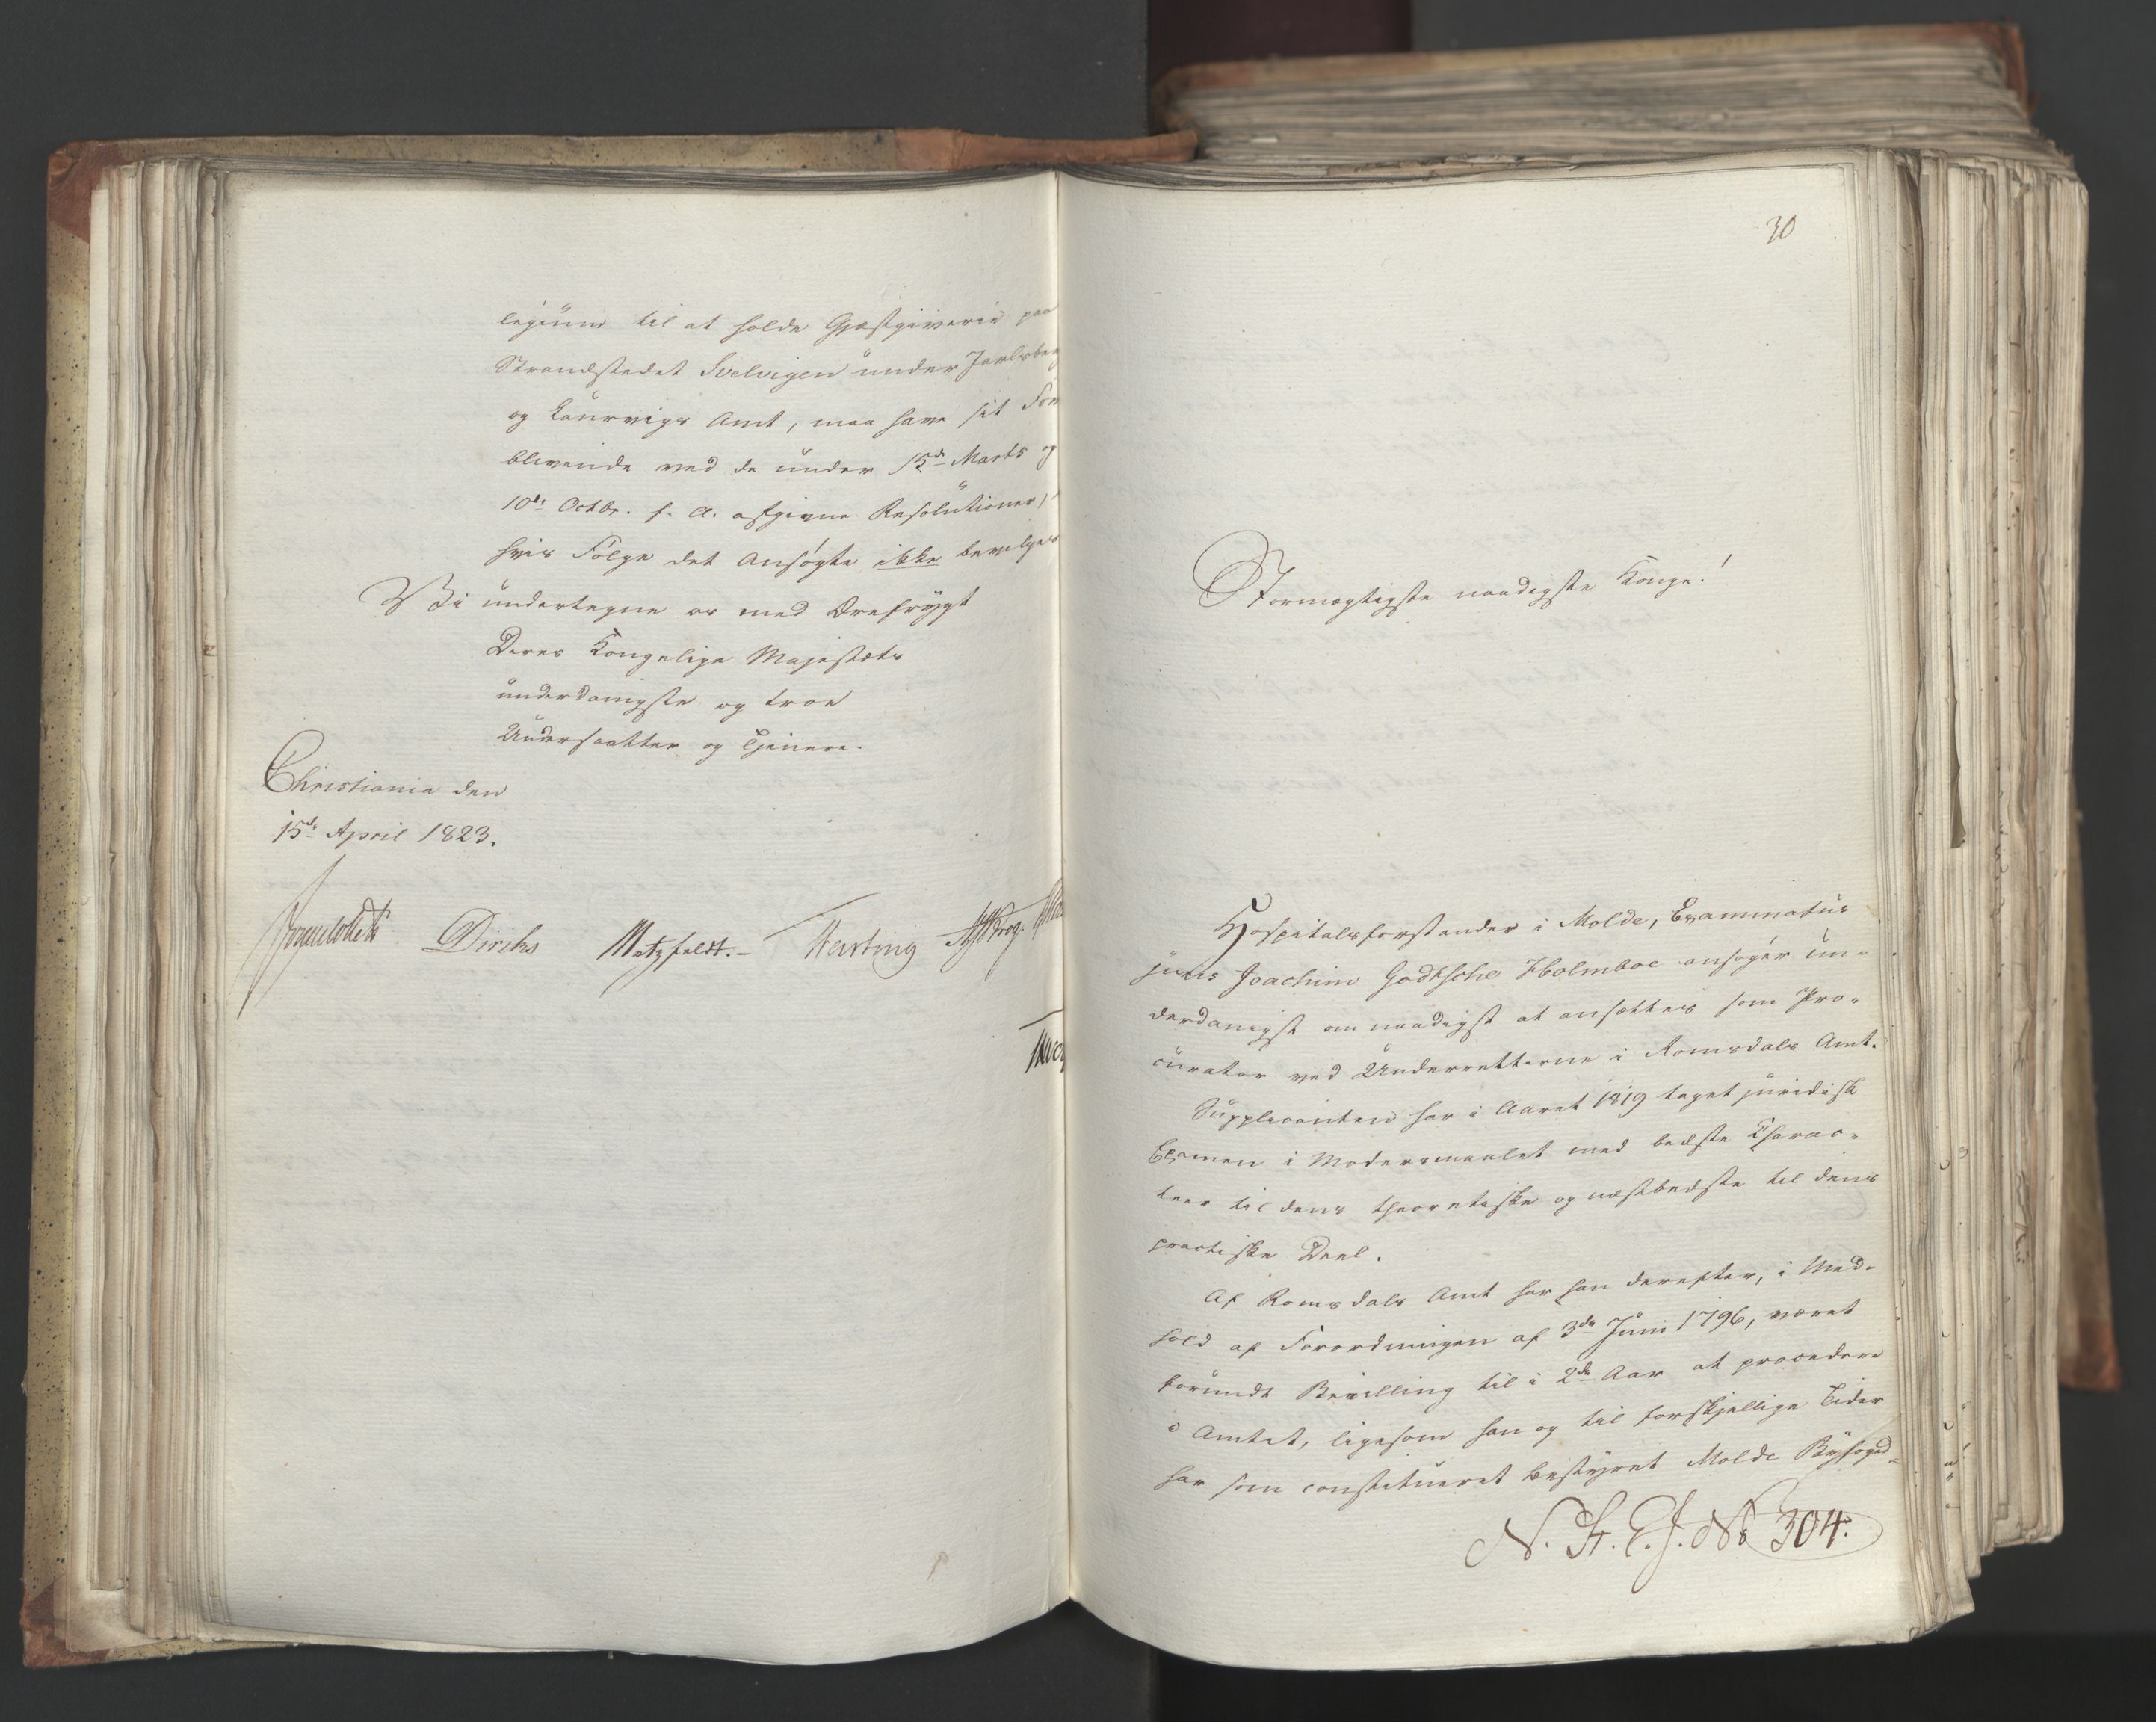 legium til at holde Gjæstgiverie paa
Strandstedet Svelvigen under Jarlsberg
og Laurvigs Amt, maa have sit For
blivende ved de under 15de Marts og
10de Octbr. f. A. afgivne Resolutioner,
hvis Følge det Ansøgte ikke bevilges
Vi undertegne os med Ærefrygt
Deres Kongelige Majestæts
underdanigste og troe
Undersaatter og Tjenere.
Christiania den
15de April 1823.
Sommerhielm Diriks Motzfeldt.- Hasting Krog.
30
Stormægtigste naadigste Konge!
Hospitalsforstander i Molde, Examinatus
juris Joachim Godtsche Holmboe ansøger un-
derdanigst om naadigst at ansættes som Pro-
curator ved Underretterne i Romsdals Amt.
Supplicanten har i Aaret 1819 taget juridisk
Examen i Modersmaalet med bedste Charac-
teer til dens theoretiske og næstbedste til dens
practiske Deel.
Af Romsdals Amt har han derefter, i Med-
hold af Forordningen af 3de Juni 1796, været
forundt Bevilling til i 2de Aar at procedere
i Amtet, ligesom han og til forskjellige Tider
har som constitueret bestyret Molde Byfoged-
N. St. E. J. No 304.